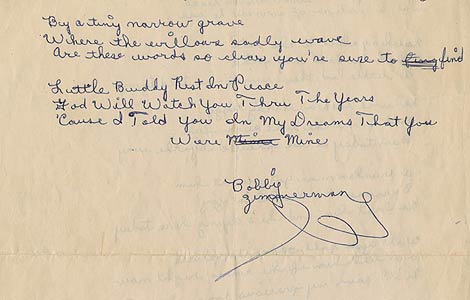 By a tiny narrow grave
Where the willows sadly wave
Are these words so clear you're sure to find
Little Buddy Rest In Peace
God Will Watch You Thru The Years
'Cause I Told You In My Dreams That You
Were Mine Mine
Bobby
Zimmerman